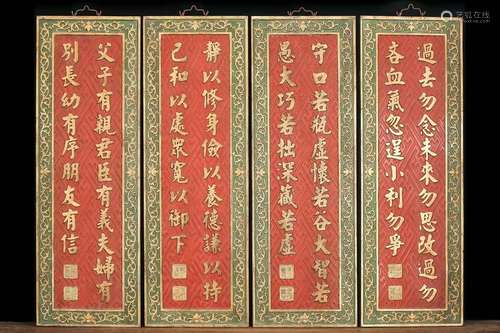 過去勿念未來勿思改過勿
吝血氣忽逞小利勿爭
守口若瓶虛懷若谷大智若
愚大巧若拙深藏若虛
靜以修身儉以養德謙以持
己和以處眾寬以御下
父子有親君臣有義夫婦有
別長幼有序朋友有信